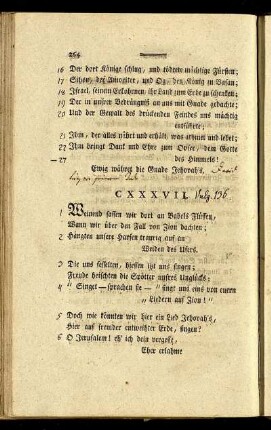 264
16 Der dort Könige schlug, und tödtete mächtige Fürsten;
17 Sihon, der Amoriter, und Og, den König in Basan;
18 Israel, seinen Erkohrnen, ihr Land zum Erbe zu schenken;
19 Der in unsrer Bedrängniß an uns mit Gnade gedachte;
20 Und der Gewalt des drückenden Feindes uns mächtig
entführte;
21 Ihm, der alles nährt und erhält, was athmet und lebet;
22 Ihm bringt Dank und Ehre zum Opfer, dem Gotte
— 27 des Himmels!
Ewig währet die Gnade Jehovah's.
CXXXVII. Vulg. 136.
1 Weinend sassen wir dort an Babels Flüssen,
Wann wir über den Fall von Zion dachten;
2 Hängten unsere Harfen traurig auf an
Weiden des Ufers.
3 Die uns fesselten, hiessen itzt uns singen;
Freude heischten die Spötter unsres Unglücks:
4 „ Singet — sprachen sie — "singt uns eins von euren
„ Liedern auf Zion! "
5 Doch wie könnten wir hier ein Lied Jehovah's,
Hier auf fremder entweihter Erde, singen?
6 O Jerusalem! eh' ich dein vergeße,
Eher erlahme